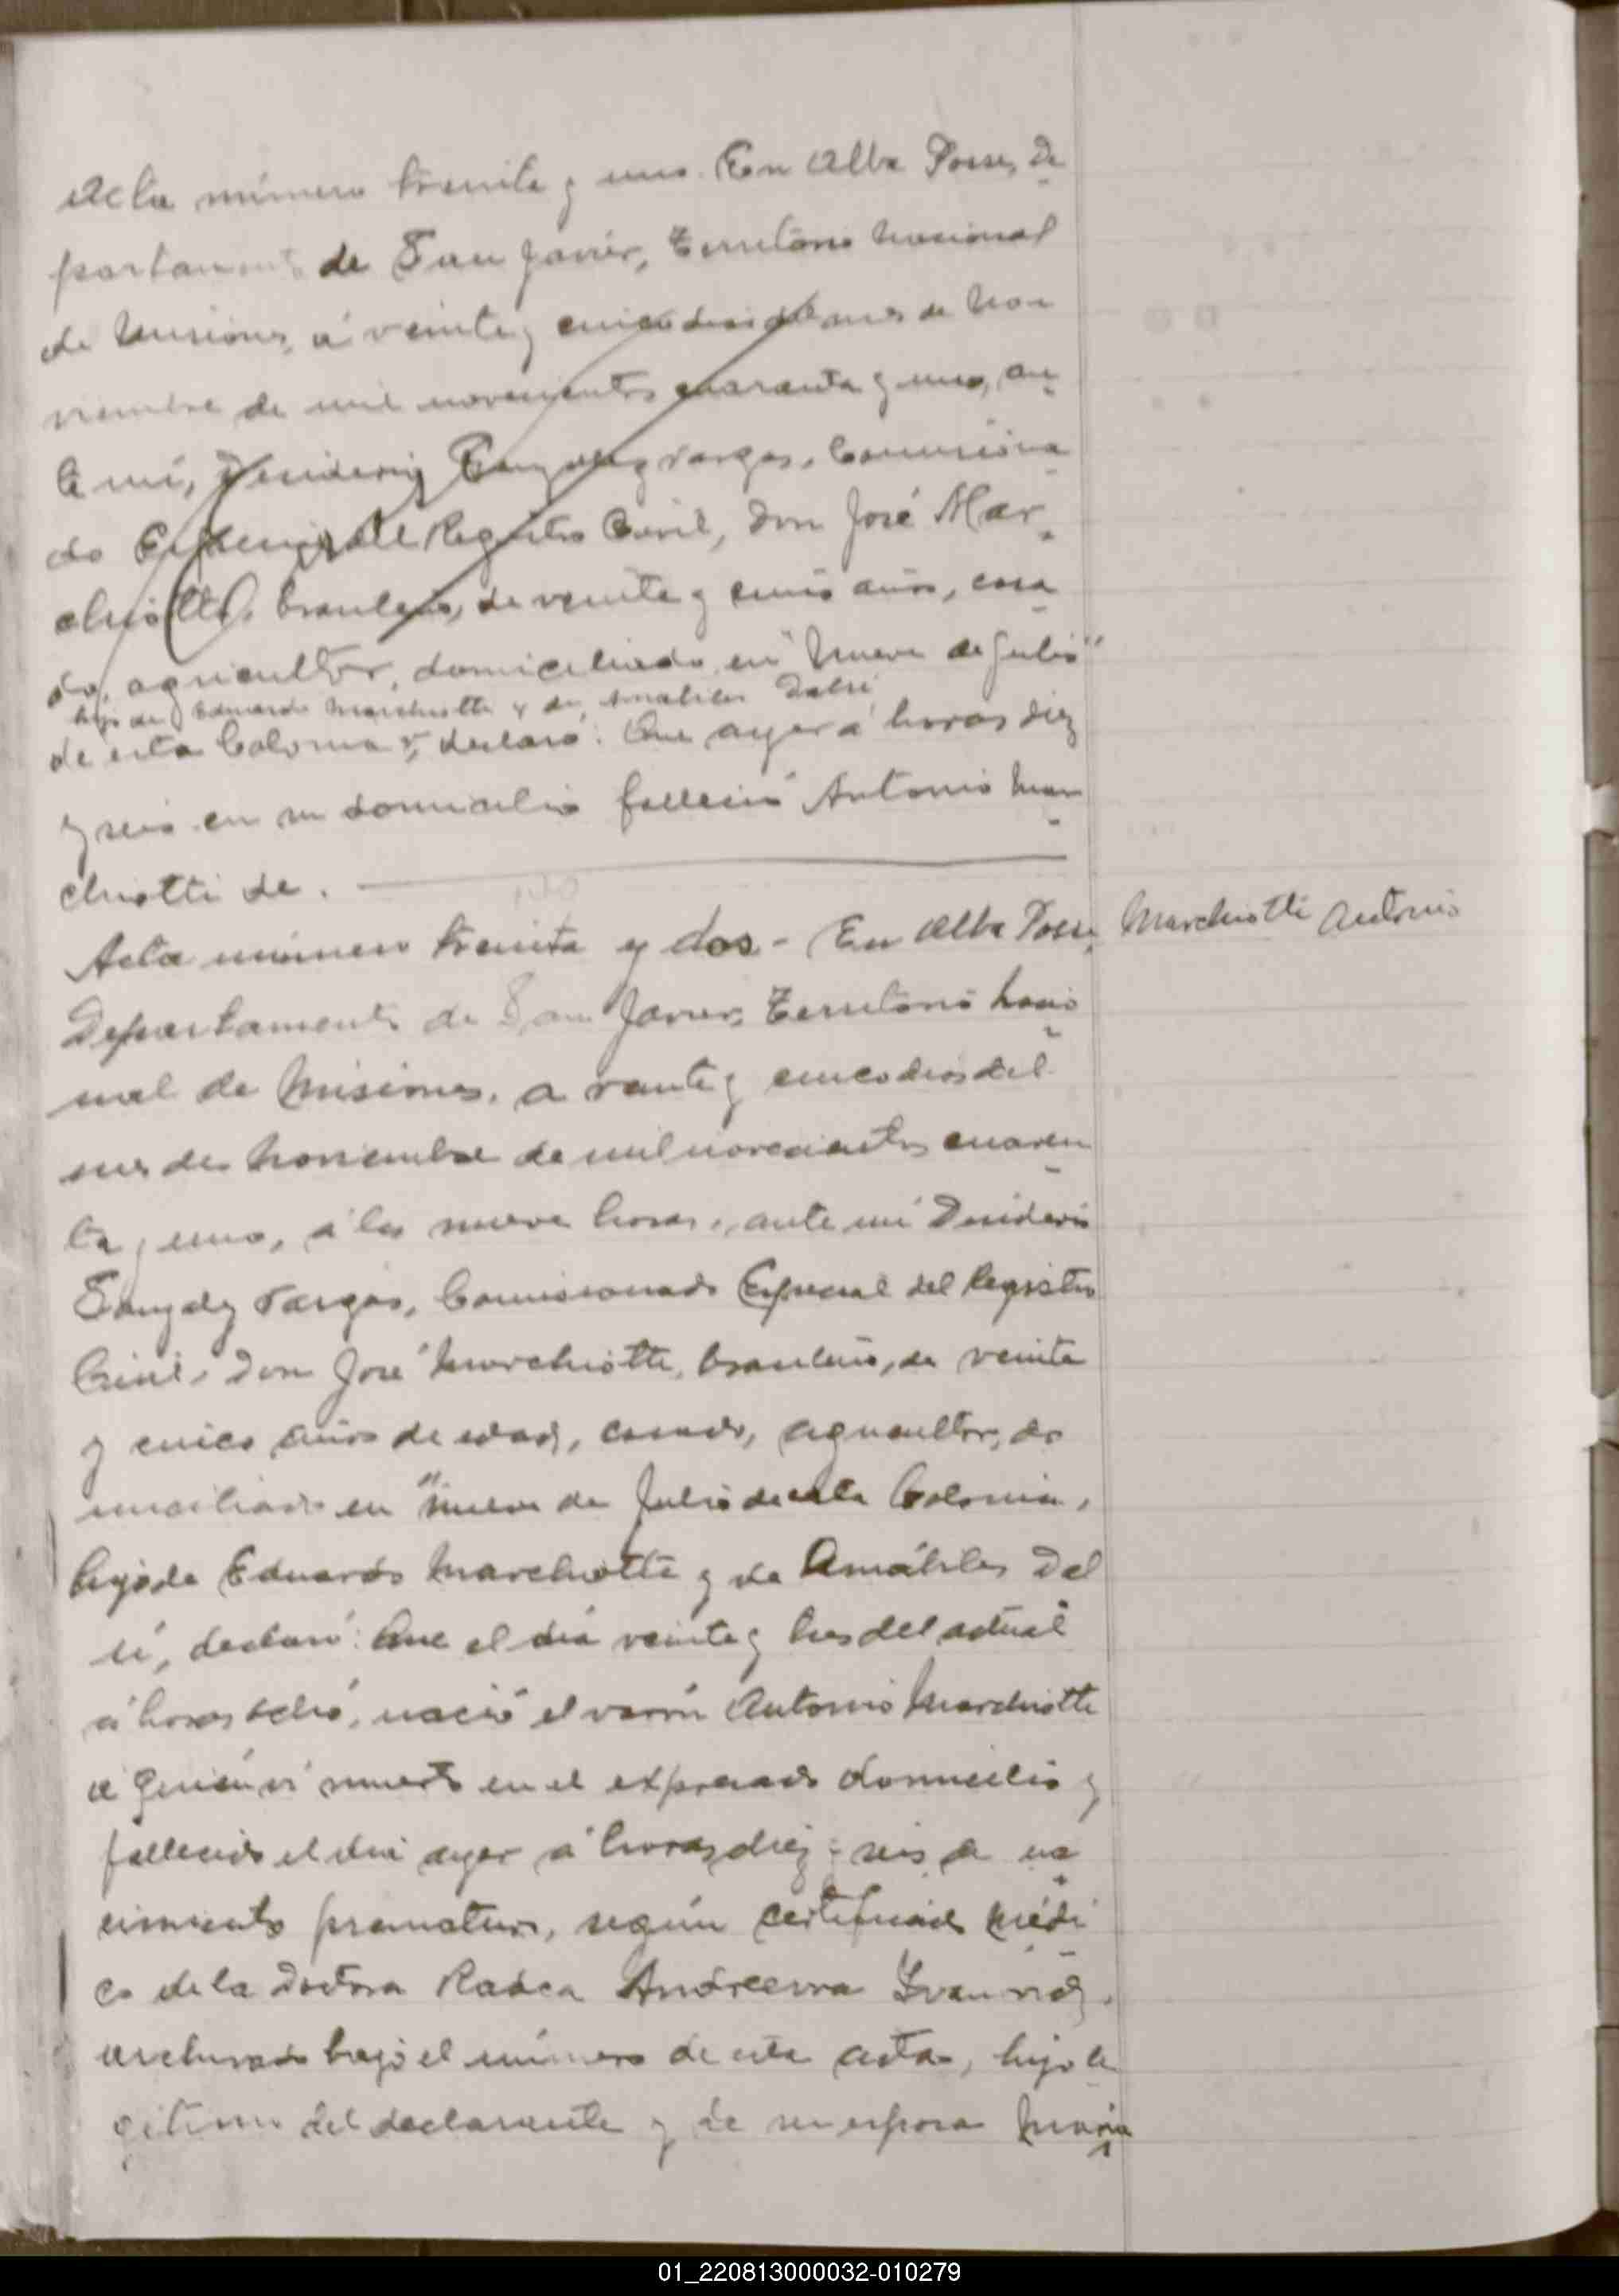 Acta número treinta y uno. En Alba Posse, De
partamento de San Javier, Territorio Nacional
de Misiones, a veinte y cinco dias del mes de Nov
viembre de mil novecientos cuarenta y uno, an
te mí, Desiderio Gonzalez Vargas, Comisiona
do Especial del Registro Civil, don José Mar
chiotti, brasileño, de veinte y cinco años, casa
do, agricultor, domiciliado en "Nueve de Julio"
hijo de Eduardo Marchiotti y de Amabiles Dalsí
de esta Colonia y, declaró: Que ayer a horas diez
y seis en su domicilio falleció Antonio Mar
chiotti de.
Acta número treinta y dos - En Alba Posse, Marchiotti Antonio
Departamento de San Javier, Territorio Nacio
nal de Misiones, a veinte y cinco dias del
mes de Noviembre de mil novecientos cuaren
ta y uno, a las nueve horas, ante mí Desiderio
Gonzalez Vargas, Comisionado Especial del Registro
Civil, don José Marchiotti, brasileño, de veinte
y cinco años de edad, casado, agricultor, do
miciliado en "Nueve de Julio de esta Colonia,
hijo de Eduardo Marchiotti y de Amábiles Dal
sí, declaró: Que el día veinte y tres del actual
a horas ocho, nació el varón Antonio Marchiotti
a quien ví muerto en el expresado domicilio y
fallecido el día ayer a horas diez y seis de na
cimiento prematuro, según certificado médi
co de la Doctora Andreevna
archivado bajo el número de esta acta, hijo le
gítimo del declarante y de su esposa María
01_220813000032-010279